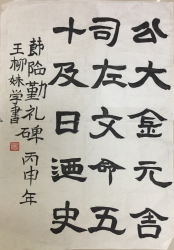 公大金元舍
司左文命五
十及日迺史
節临勤礼碑丙申年
王柳妹学書